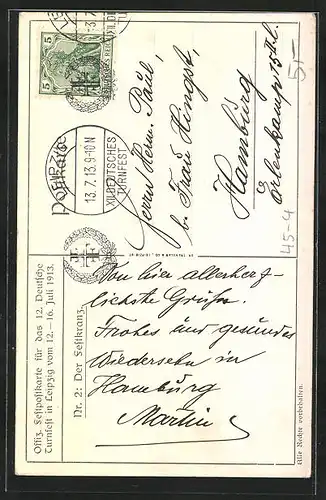 Offiz. Festpostkarte für das 12. Deutsche
Turnfest in Leipzig vom 12.-16. Juli 1913.
Nr. 2: Der Festkranz.
Postkarte
5
5
DEUTSCHES REICH
13.7.13.9-10N
XII. DEUTSCHES
TURNFEST
Herrn Herm. Paul,
b. Frau Hingst,
Hamburg
Erlenkamp 15 II. l.
5,-
45-4
Von hier allerherz-
lichste Grüße.
Frohes und gesundes
Wiedersehn in
Hamburg
Martin
Alle Rechte vorbehalten.